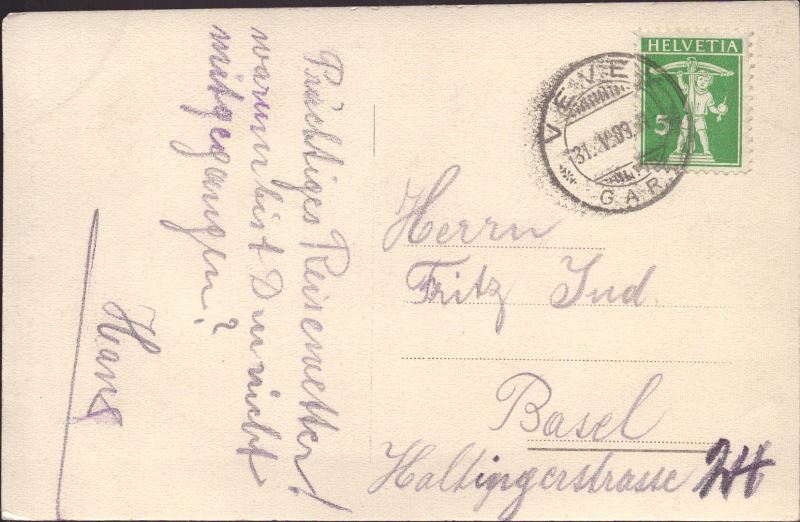 Prächtiges Reisewetter!
warum bist Du nicht
mitgegangen?
Hans
HELVETIA
5
VEVEY
GARE
Herrn
Fritz Jud.
Basel
Haltingerstrasse